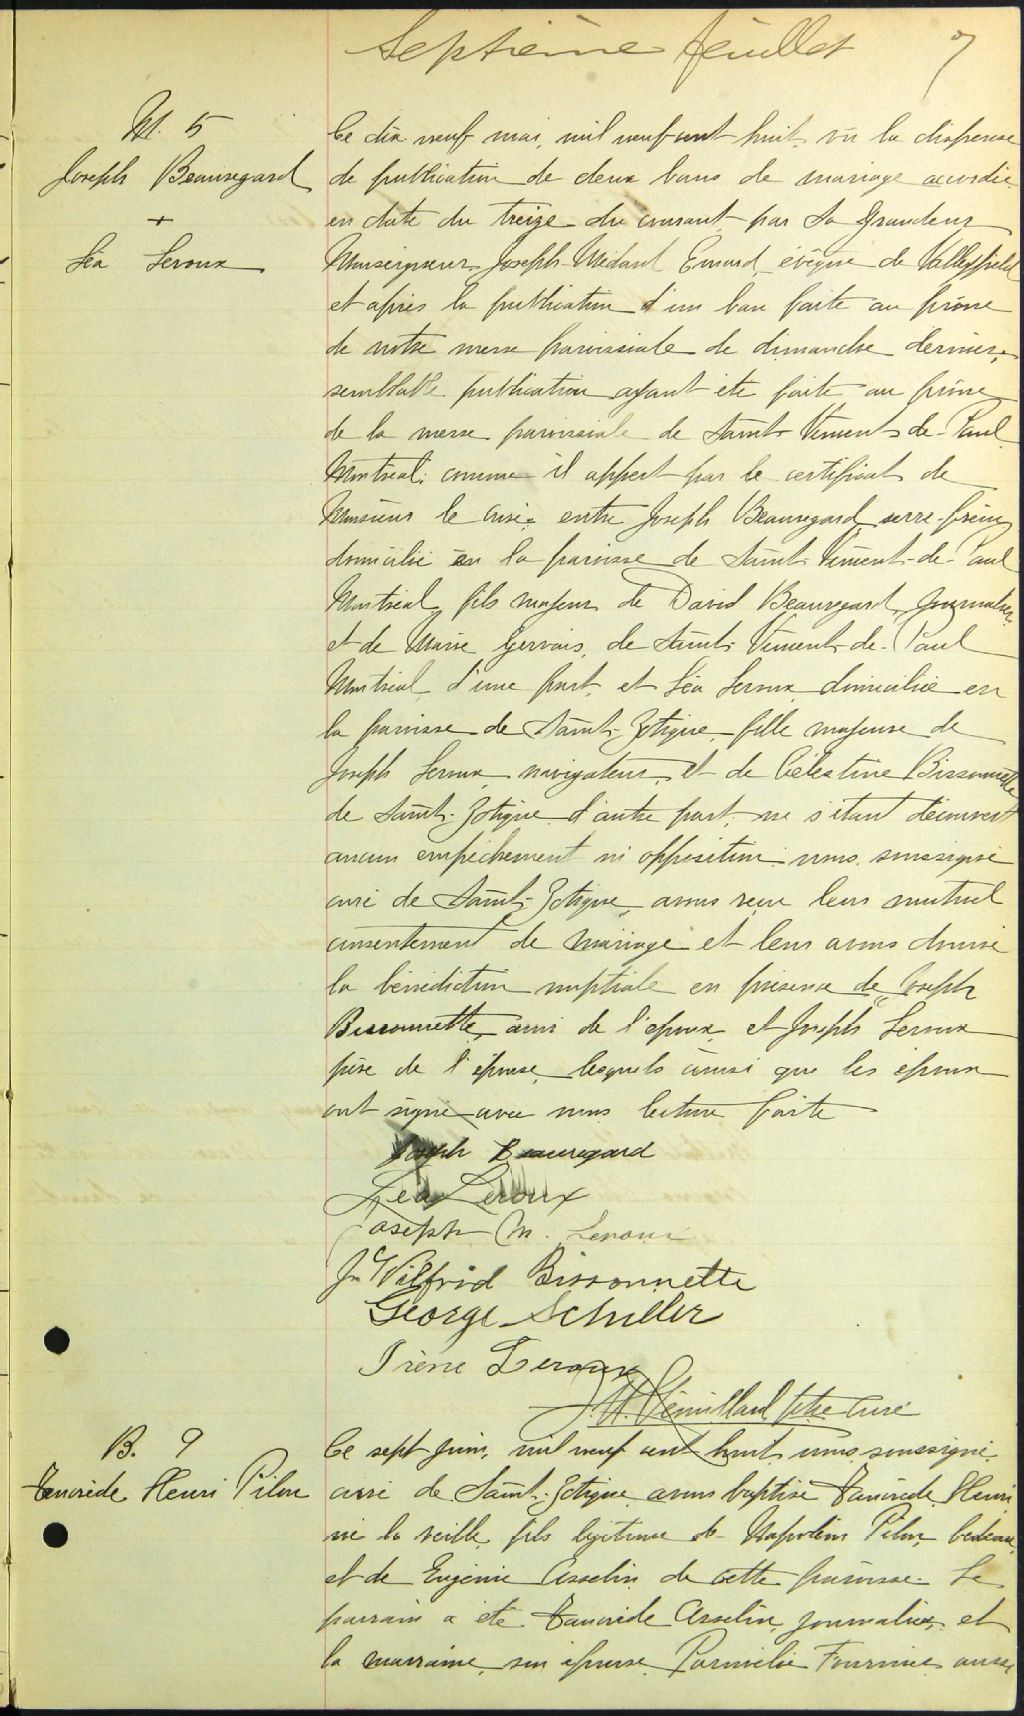 Septième feuillet 7
M. 5
Joseph Beauregard
+
Léa Leroux
Ce dix neuf mai, mil neuf cent huit, vu la dispense
de publication de deux bans de mariage accordée
en date du treize du courant par Sa Grandeur
Monseigneur Joseph-Médard Emard, évêque de Valleyfield
et après la publication d'un ban faite au prône
de notre messe paroissiale de dimanche dernier,
semblable publication ayant été faite au prône
de la messe paroissiale de Saint-Vincent-de-Paul
Montréal, comme il appert par le certificat de
Monsieur le curé; entre Joseph Beauregard, serre-frein
domicilié en la paroisse de Saint-Vincent-de-Paul
Montréal, fils majeur de David Beauregard, journalier,
et de Marie Gervais, de Saint-Vincent-de-Paul
Montréal, d'une part, et Léa Leroux domiciliée en
la paroisse de Saint-Zotique, fille majeure de
Joseph Leroux, navigateur, et de Célestine Bissonnette
de Saint-Zotique d'autre part; ne s'étant découvert
aucun empêchement ni opposition nous soussigné
curé de Saint-Zotique, avons reçu leur mutuel
consentement de mariage et leur avons donné
la bénédiction nuptiale en présence de Joseph
Bissonnette, ami de l'époux, et Joseph Leroux
père de l'épouse, lesquels ainsi que les époux
ont signé avec nous lecture faite
Joseph Beauregard
Léa Leroux
Joseph M. Leroux
Jh Wilfrid Bissonnette
George Schiller
Irène Leroux
ptre Curé
B. 9
Tancrède Henri Pilon
Ce sept juin, mil neuf cent huit nous soussigné,
curé de Saint-Zotique avons baptisé Tancrède Henri
né la veille, fils légitime de Napoléon Pilon, bedeau,
et de Eugénie Asselin de cette paroisse. Le
parrain a été Tancrède Asselin, journalier, et
la marraine, son épouse Parmélie Fournier aussi